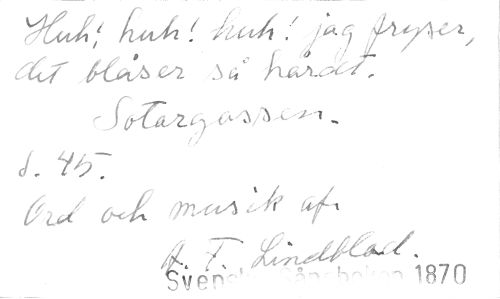 Huh! huh! huh! jag fryser,
det blåser så hårdt.
Sotargossen.
s. 45.
Ord och musik af
A. F. Lindblad.
Svenska Sångboken 1870